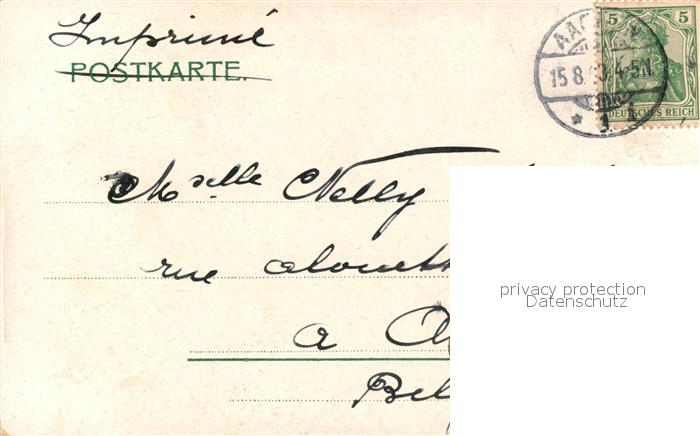 Imprimé
POSTKARTE.
5 5
DEUTSCHES REICH
15.8. 4-5N.
Mselle Nelly
rue
a
Bel
privacy protection
Datenschutz